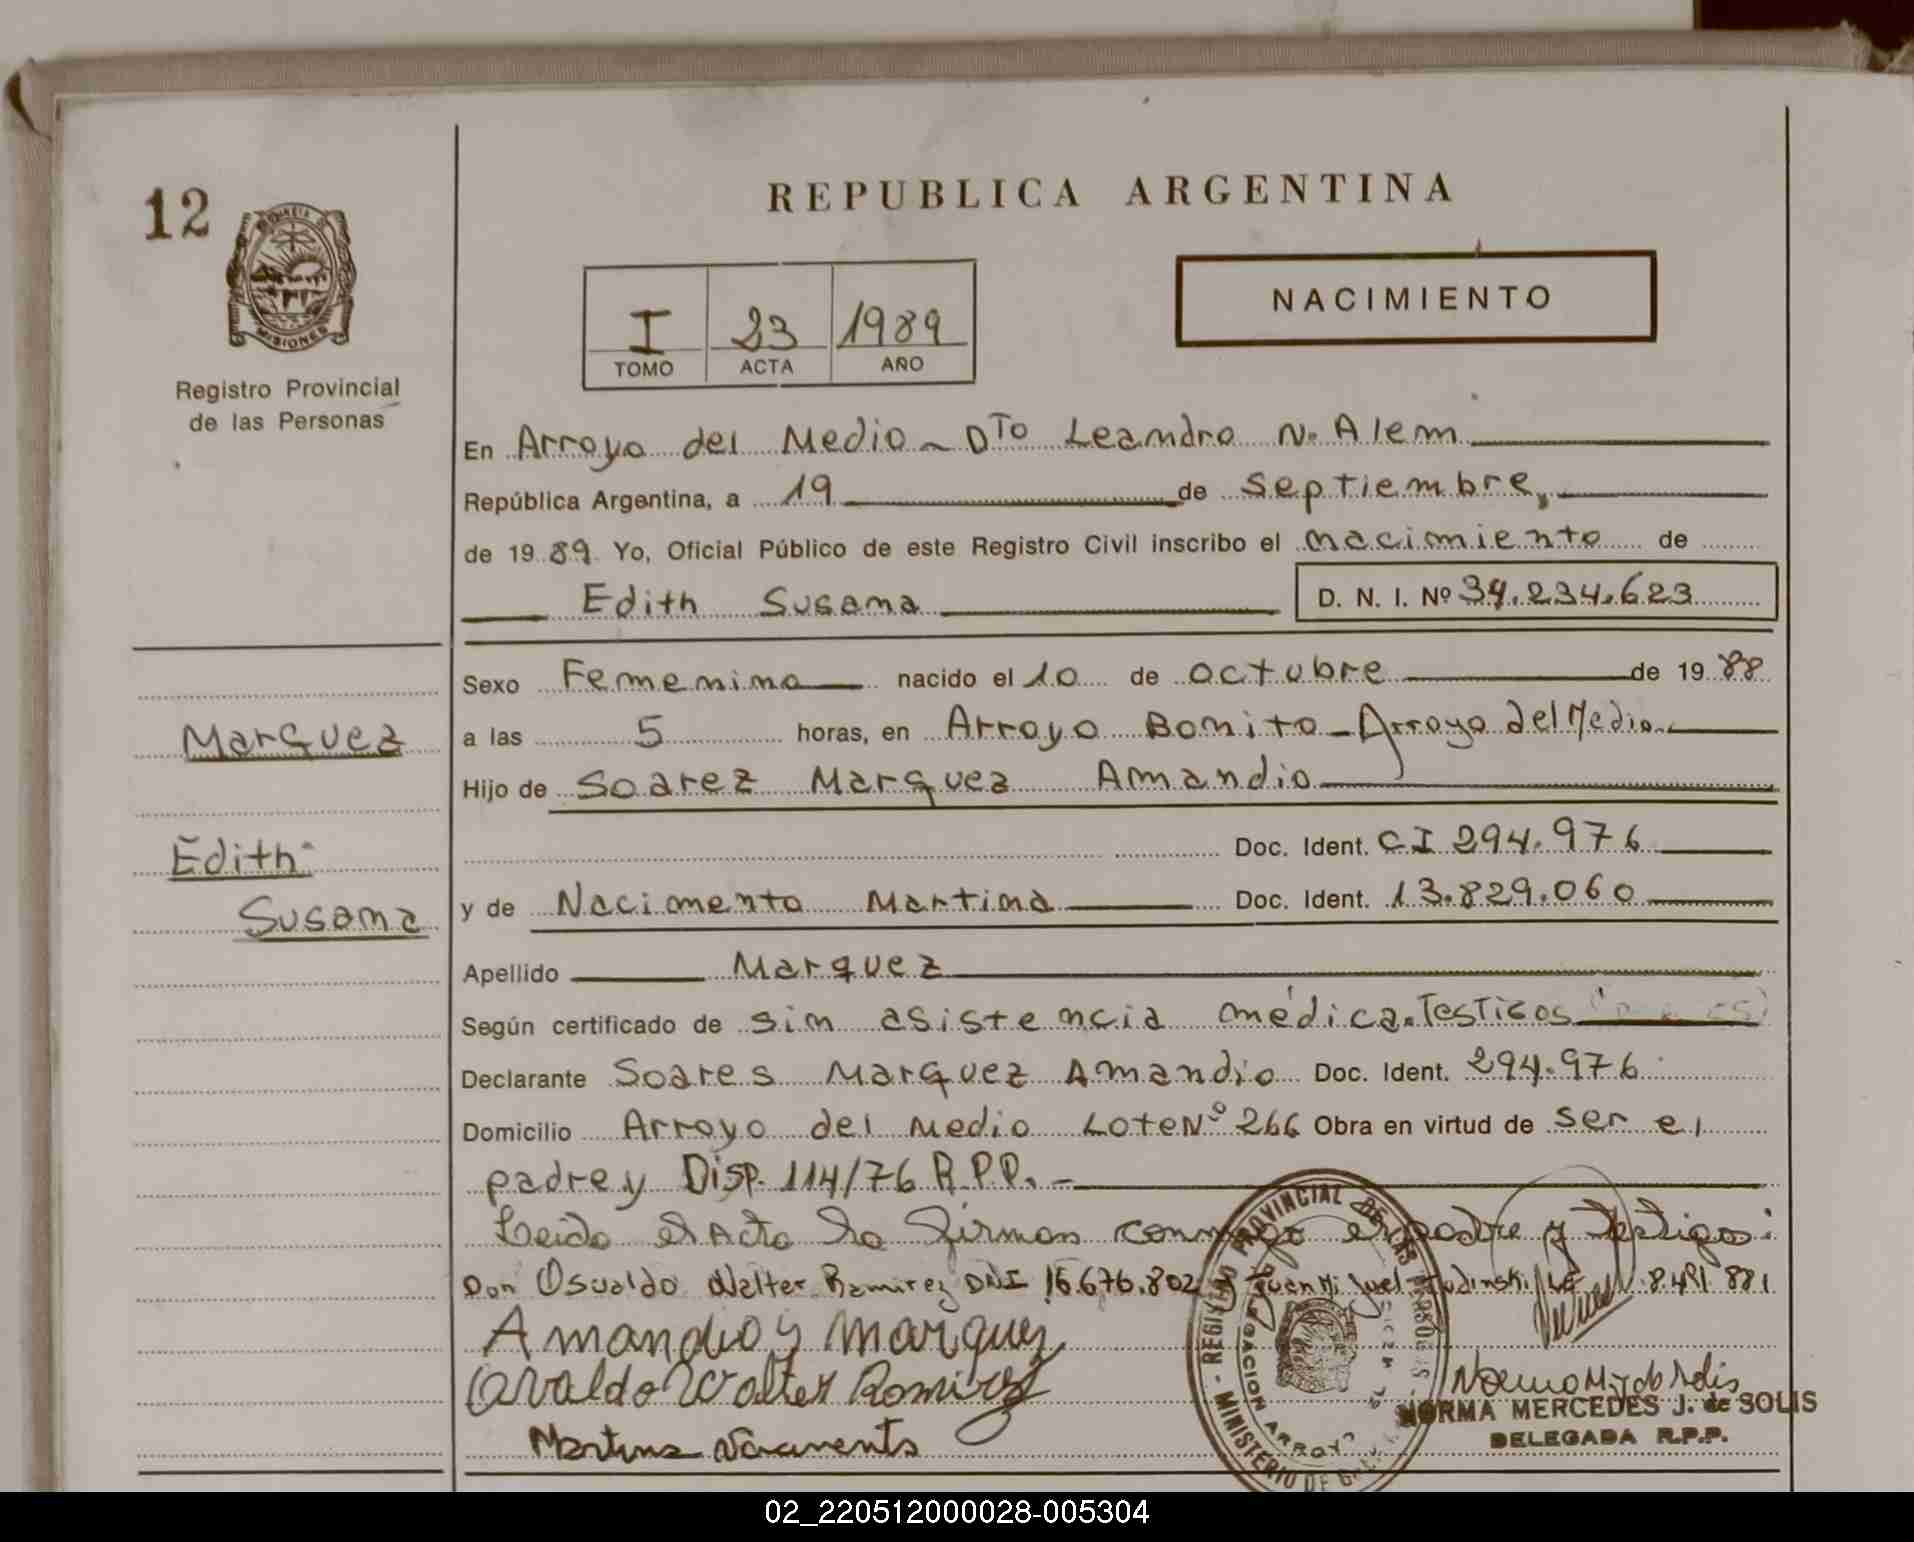 12
MISIONES
Registro Provincial
de las Personas
REPUBLICA ARGENTINA
I 23 1989
TOMO ACTA AÑO
NACIMIENTO
En Arroyo del Medio - Dto Leandro N. Alem
República Argentina, a 19 de Septiembre,
de 1989 Yo, Oficial Público de este Registro Civil inscribo el nacimiento de
Edith Susana D. N. I. Nº 34.234.623
Sexo Femenino nacido el 10 de octubre de 1988
Marquez
a las 5 horas, en Arroyo Bonito - Arroyo del Medio
Hijo de Soarez Marquez Amandio
Edith
Doc. Ident. CI 294.976
Susana
y de Nacimento Martina Doc. Ident. 13.829.060
Apellido Marquez
Según certificado de sin asistencia médica. Testigos
Declarante Soares Marquez Amandio Doc. Ident. 294.976
Domicilio Arroyo del Medio Lote Nº 266 Obra en virtud de ser el
padre y Disp. 114/76 R.P.P. -
Leido el Acta la firman conmigo el padre y testigos:
Don Osvaldo Walter Ramirez DNI 16.676.802 y Juan Miguel LE 8.491.881
Amandio y marquez
Osvaldo Walter Ramirez
Martina Nacimento
REGISTRO PROVINCIAL DE LAS PERSONAS - MINISTERIO DE
DELEGACION ARROYO
NORMA MERCEDES J. de SOLIS
DELEGADA R.P.P.
02_220512000028-005304